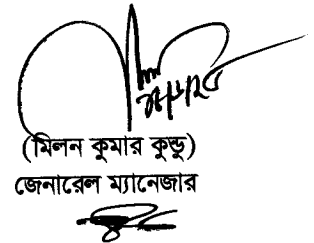 (মিলন কুমার কুন্ডু)
জেনারেল ম্যানেজার